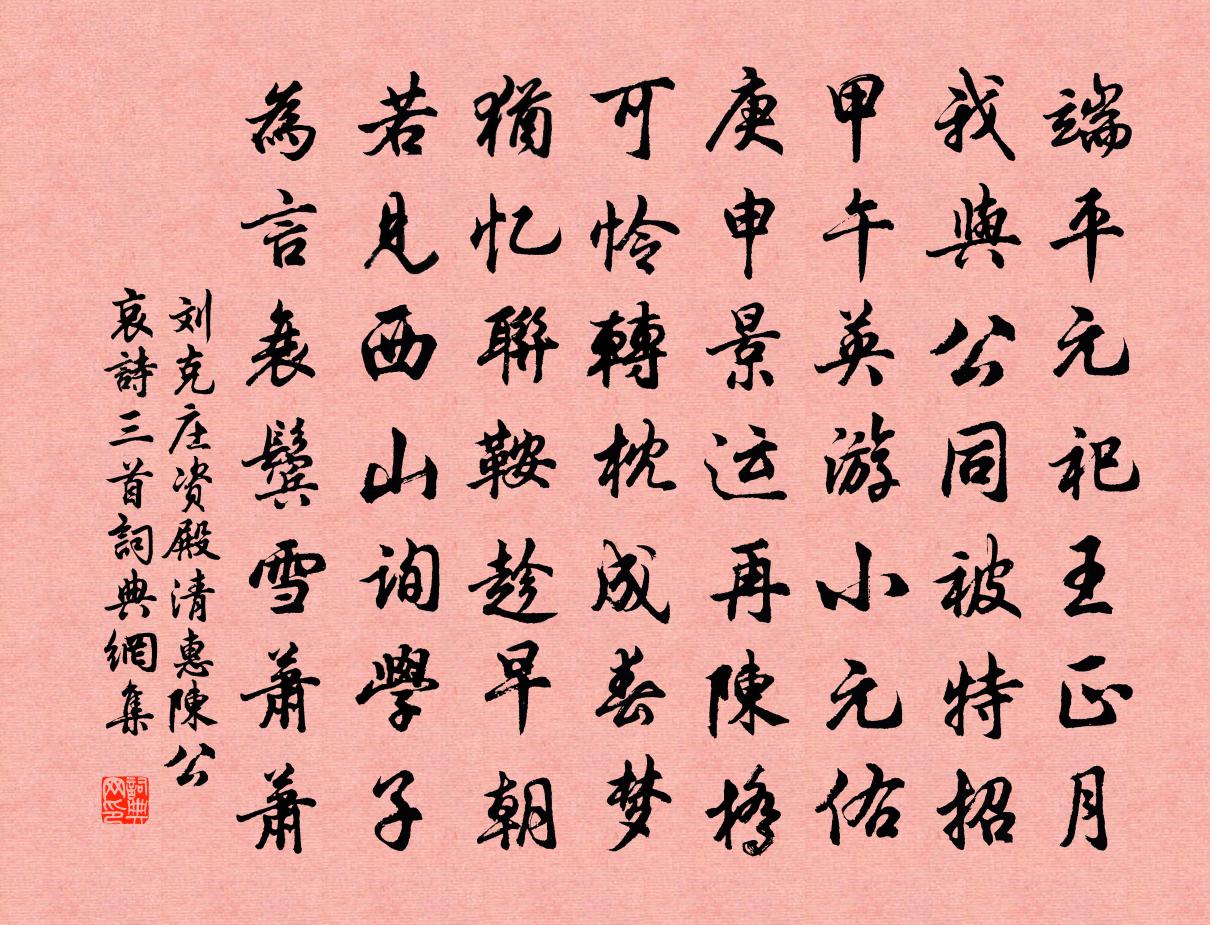 端平元祀王正月
我與公同被特招
甲午英游小元佑
庚申景运再陳橋
可怜轉枕成春梦
猶忆聯鞍趁早朝
若見西山询學子
為言衰鬓雪萧萧
刘克庄资殿清惠陳公
哀詩三首詞典網集
詞典网印